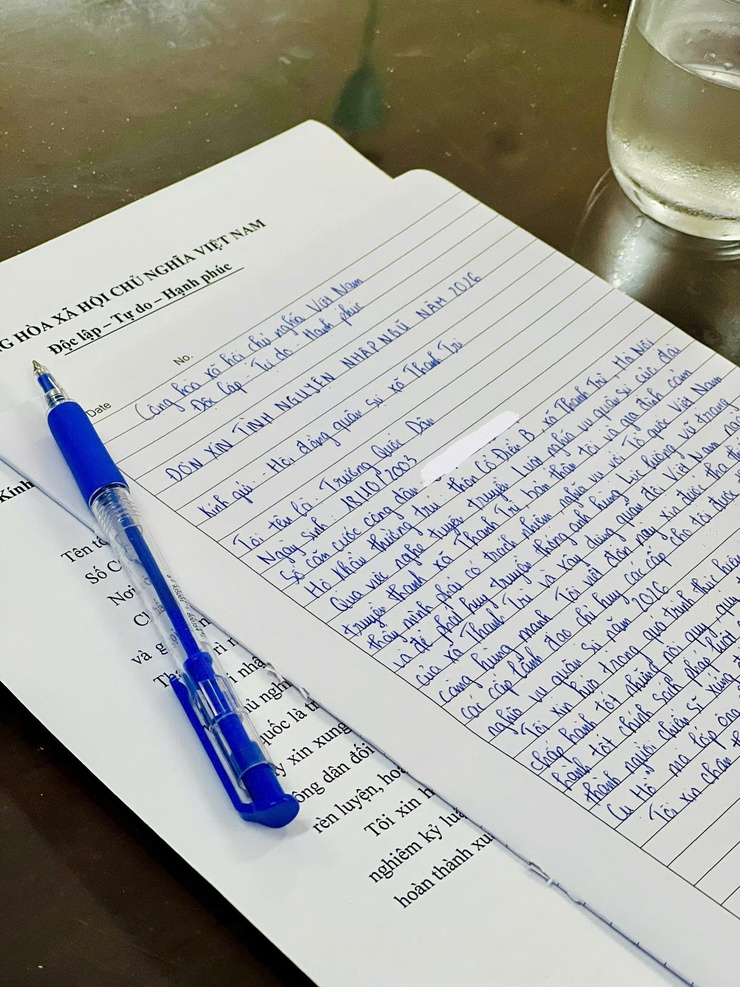 G HÒA XÃ HỘI CHỦ NGHĨA VIỆT NAM
Độc lập – Tự do – Hạnh phúc
No.
Date
Cộng hòa xã hội chủ nghĩa Việt Nam
Độc lập - Tự do - Hạnh phúc
ĐƠN XIN TÌNH NGUYỆN NHẬP NGŨ NĂM 2026
Kính gửi: Hội đồng quân sự xã Thanh Trì
Tôi tên là: Trương Quốc Dân
Ngày sinh: 18/10/2003
Số căn cước công dân
Hộ khẩu thường trú: thôn Cổ Điển B, xã Thanh Trì, Hà Nội
Qua việc nghe tuyên truyền Luật nghĩa vụ quân sự của đài
truyền thanh xã Thanh Trì, bản thân tôi và gia đình cảm
thấy mình phải có trách nhiệm nghĩa vụ với Tổ quốc Việt Nam
và để phát huy truyền thống anh hùng Lực lượng vũ trang
của xã Thanh Trì và xây dựng quân đội Việt Nam
càng hùng mạnh. Tôi viết đơn này xin được tha thiết
các cấp lãnh đạo chỉ huy các cấp cho tôi được
nghĩa vụ quân sự năm 2026
Tôi xin hứa trong quá trình thực hiện
chấp hành tốt những nội quy, quy
hành tốt chính sách pháp luật
thành người chiến sĩ xứng
Cụ Hồ" mà lớp
Tôi xin chân
Kính
Tên tô
Số C
Nơi
C
và g
Tha
nhậ
nghĩ
quốc là tr
xin xung
ông dân đối
rèn luyện, hoà
Tôi xin h
nghiêm kỷ luậ
hoàn thành xu